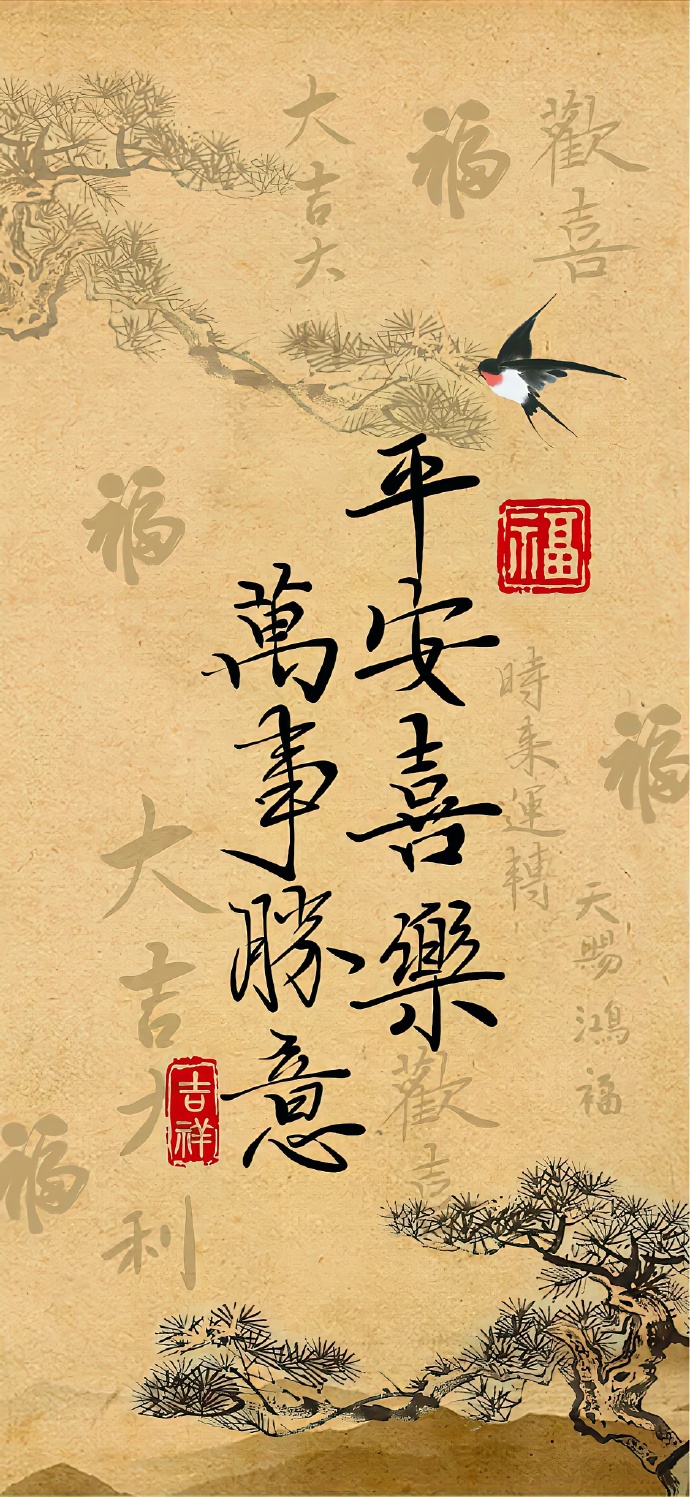 平安喜樂
萬事勝意
福
吉祥
歡喜
福
大吉大
福
時来運轉
福
天賜鴻福
大吉大利
歡喜
福